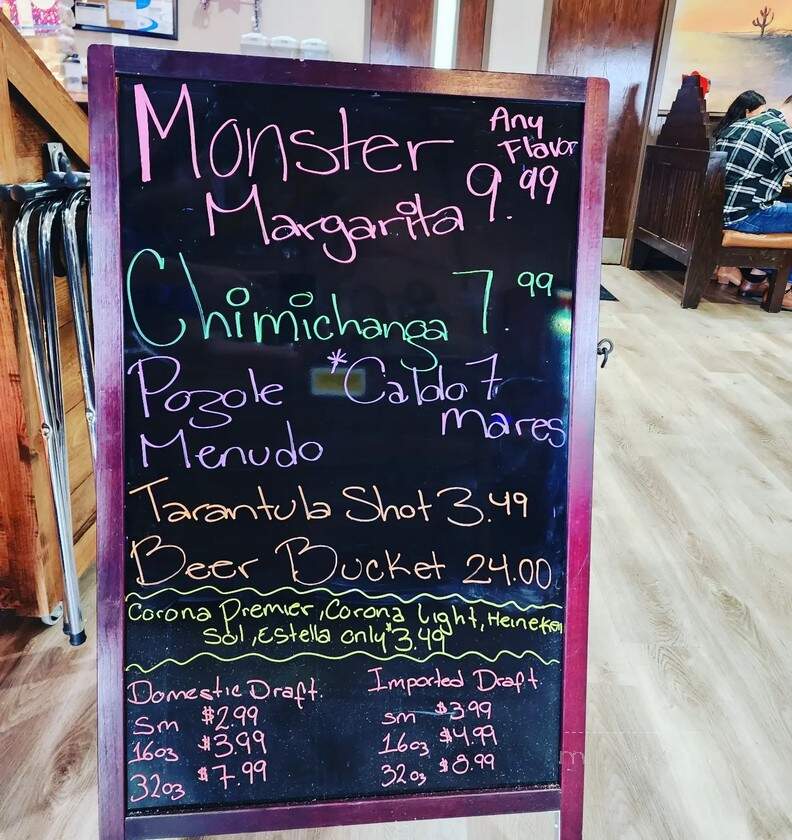 Monster Any Flavor
Margarita 9.99
Chimichanga 7.99
Pozole *Caldo 7
Menudo mares
Tarantula Shot 3.49
Beer Bucket 24.00
Corona Premier, Corona Light, Heineken
Sol, Estella only $3.49
Domestic Draft. Imported Draft.
sm $2.99 sm $3.99
16oz $3.99 16oz $4.99
32oz $7.99 32oz $8.99